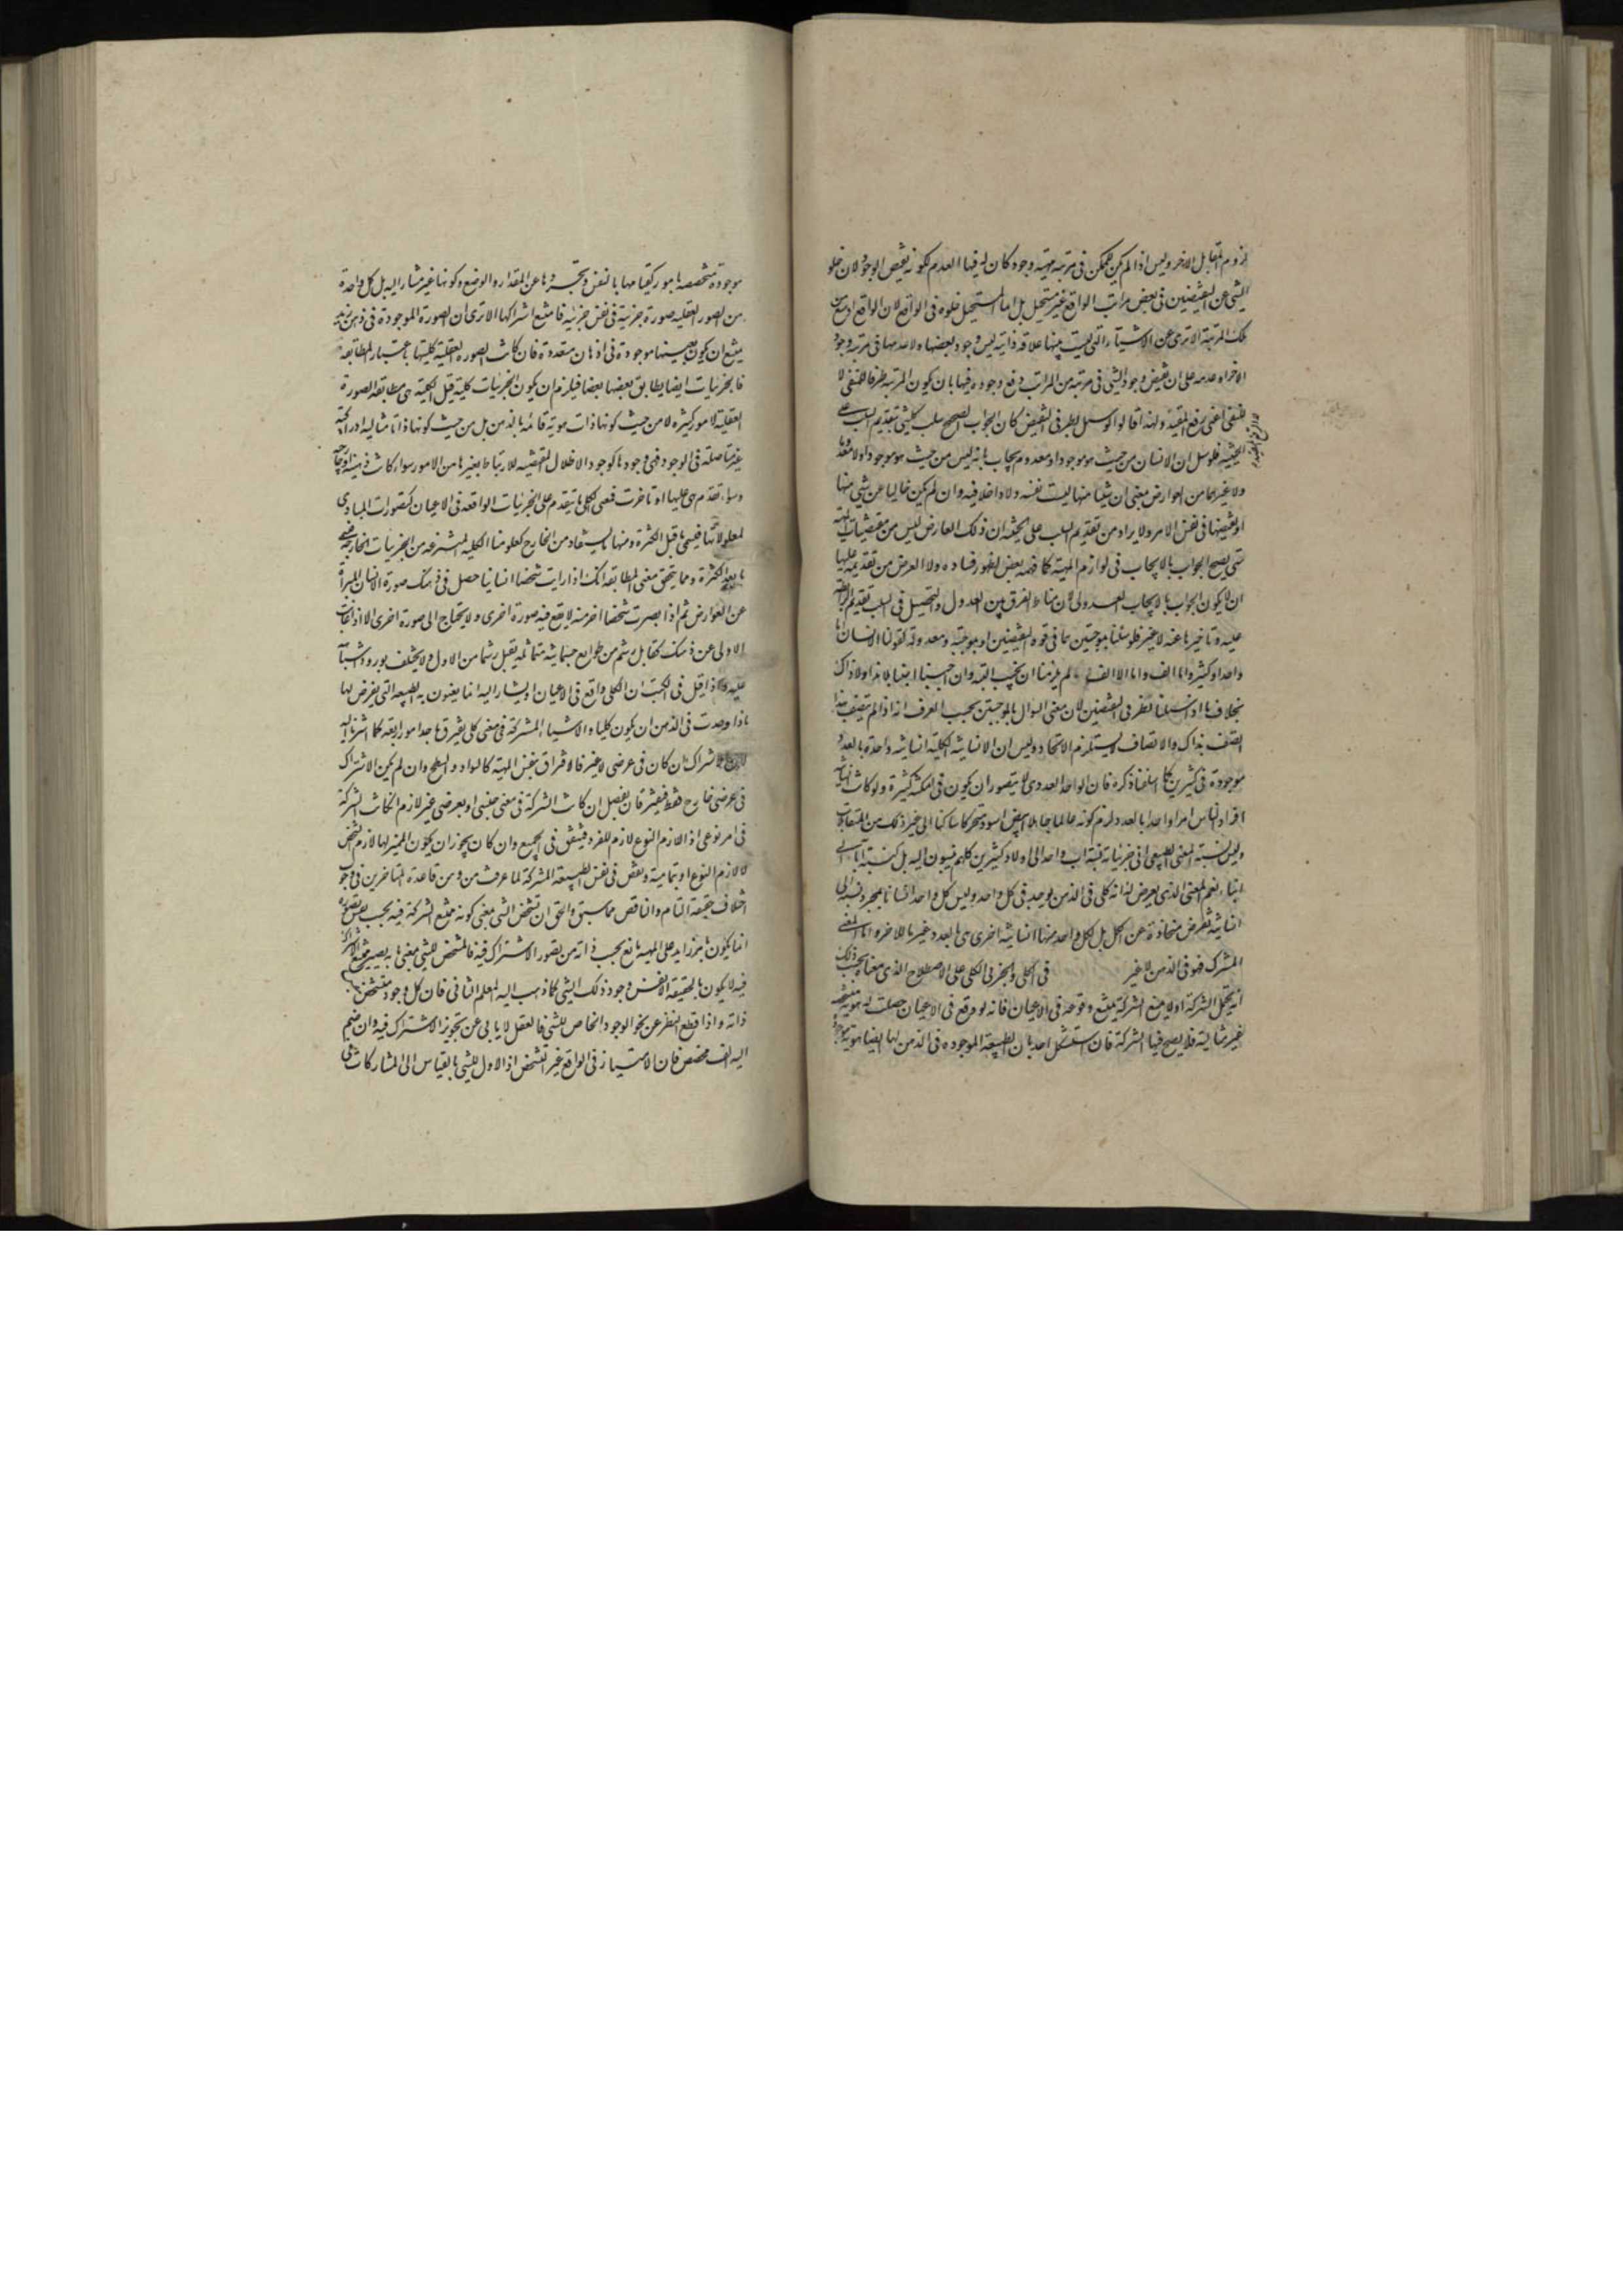 لزوم المقابل الاخر وليس اذا لم يكن للممكن فى مرتبة مهيته وجود كان له فيها العدم لكونه نقيض الوجود لان خلو
الشى عن النقيضين فى بعض مراتب الواقع غير مستحيل بل انما المستحيل خلوه فى الواقع لان الواقع اوسع من
تلك المرتبة الا ترى ان الاشياء التى ليست بينها علاقة ذاتية ليس وجود بعضها ولا عدمها فى مرتبة وجود
الاخر او عدمه على ان نقيض وجود الشى فى مرتبة من المراتب رفع وجوده فيها بان يكون المرتبة ظرفا للمنفى لا
للنفى اعنى رفع المقيد ولهذا قالوا لو سئل بطرفى النقيض كان الجواب الصحيح سلب كل شى بتقديم السلب على
الحيثية فلو سئل ان الانسان من حيث هو موجود او معدوم يجاب بانه ليس من حيث هو موجودا ولا معدوما
ولا غيرهما من العوارض بمعنى ان شيئا منها ليست نفسه ولا داخلا فيه وان لم يكن خاليا عن شى منها
او نقيضها فى نفس الامر ولا يراد من تقديم السلب على الحيثية ان ذلك العارض ليس من مقتضيات المهية
حتى يصح الجواب بالايجاب فى لوازم المهية كما فهمه بعض لظهور فساده ولا الغرض من تقديمه عليها
ان لا يكون الجواب بالايجاب العدولى لان مناط الفرق بين العدول والتحصيل فى السلب تقديم الرابطة
عليه وتاخيرها عنه لا غير فلو سئلنا بموجبتين هما فى قوة النقيضين او بموجبة ومعدولة كقولنا الانسان اما
واحد او كثير واما الف واما لا الف لم يلزمنا ان نجيب البتة وان اجبنا اجبنا بلا هذا ولا ذاك
بخلاف ما اذا سئلنا بطرفى النقيضين لان معنى السوال بالموجبتين بحسب العرف انه اذا لم يتصف بهذا
اتصف بذاك والاتصاف لا يستلزم الاتحاد وليس ان الانسانية الكلية انسانية واحدة بالعدد
موجودة فى كثيرين كما اسلفنا ذكره فان الواحد العددى لا يتصور ان يكون فى امكنة كثيرة ولو كانت انسانية
افراد الناس امرا واحدا بالعدد لزم كونه عالما جاهلا ابيض اسود متحركا ساكنا الى غير ذلك من المتقابلات
وليس نسبة المعنى الطبيعى الى جزئياته نسبة اب واحد الى اولاد كثيرين كلهم ينسبون اليه بل كنسبة اباء الى
ابناء نعم المعنى الذى يعرض له انه كلى فى الذهن يوجد فى كل واحد وليس كل واحد انسانا بمجرد نسبته الى
انسانية تفرض منحازة عن الكل بل لكل واحد منها انسانية اخرى هى بالعدد غير ما للاخر واما المعنى
المشترك فهو فى الذهن لا غير فى الكلى والجزئى الكلى على الاصطلاح الذى معناه بحسب ذلك
انه يحتمل الشركة او لا يمنع الشركة يمتنع وقوعه فى الاعيان فانه لو وقع فى الاعيان حصلت له هوية متشخصة
غير مثالية فلا يصح فيها الشركة فان استشكل احد بان الطبيعة الموجودة فى الذهن لها ايضا هوية موجودة
موجودة متخصصة بامور كقيامها بالنفس وتجردها عن المقدار والوضع وكونها غير مشار اليه بل كل واحدة
من الصور العقلية صورة جزئية فى نفس جزئية فامتنع اشتراكها الا ترى ان الصورة الموجودة فى ذهن زيد
يمتنع ان يكون بعينها موجودة فى اذهان متعددة فان كانت الصورة العقلية كليتها باعتبار المطابقة
فالجزئيات ايضا يطابق بعضها بعضا فيلزم ان يكون الجزئيات كلية قيل الكلية هى مطابقة الصورة
العقلية لامور كثيرة لا من حيث كونها ذات هوية قائمة بالذهن بل من حيث كونها ذاتا مثالية ادراكية
غير متاصلة فى الوجود فهى وجودها كوجود الاظلال المقتضية للارتباط بغيرها من الامور سواء كانت ذهنية او خارجية
وسواء تقدم هى عليها او تاخرت فمن الكلى ما يتقدم على الجزئيات الواقعة فى الاعيان كتصورات المبادى
لمعلولاتها فيسمى ما قبل الكثرة ومنها ما يستفاد من الخارج كعلومنا الكلية المنتزعة من الجزئيات الخارجية فيسمى
ما بعد الكثرة ومما يتحقق معنى المطابقة انك اذا رايت شخصا انسانيا حصل فى ذهنك صورة الانسان المبرأة
عن العوارض ثم اذا ابصرت شخصا اخر منه لا يقع فيه صورة اخرى ولا يحتاج الى صورة اخرى الا اذا غابت
الاولى عن ذهنك كقابل رشم من طوابع جسمانية متماثلة يقبل رشما من الاول ولا يختلف بورود اشباهه
عليه واذا قيل فى الكتب ان الكلى واقع فى الاعيان او يشار اليه انما يعنون به الطبيعة التى يعرض لها
اذا وجدت فى الذهن ان يكون كليا والاشياء المشتركة فى معنى كلى يفترق باحد امور اربعة كما اشرنا اليه
لان الاشتراك ان كان فى عرضى لا غير فالافتراق بنفس المهية كالسواد والسطح وان لم يكن الاشتراك
فى عرضى خارج فقط فيفترقان بفصل ان كانت الشركة فى معنى جنسى او بعرضى غير لازم ان كانت الشركة
فى امر نوعى اذ اللازم النوع لازم للفرد فيتفق فى الجميع وان كان يجوز ان يكون المميز لها لازم الشخص
لا لازم النوع او بتمامية ونقص فى نفس الطبيعة المشتركة لما عرفت من وهن قاعدة المتاخرين فى وجوب
اختلاف حقيقة التام والناقص مما سبق والحق ان تشخص الشى بمعنى كونه ممتنع الشركة فيه بحسب نفس تصوره
انما يكون بامر زايد على المهية مانع بحسب ذاته من تصور الاشتراك فيه فالمشخص للشى بمعنى ما به يصير ممتنع الاشتراك
فيه لا يكون بالحقيقة الا نفس وجود ذلك الشى كما ذهب اليه المعلم الثانى فان كل وجود متشخص بنفس
ذاته واذا قطع النظر عن نحو الوجود الخاص للشى فالعقل لا يابى عن تجويز الاشتراك فيه وان ضم
اليه الف مخصص فان الامتياز فى الواقع غير التشخص اذ الاول للشى بالقياس الى المشاركات فى